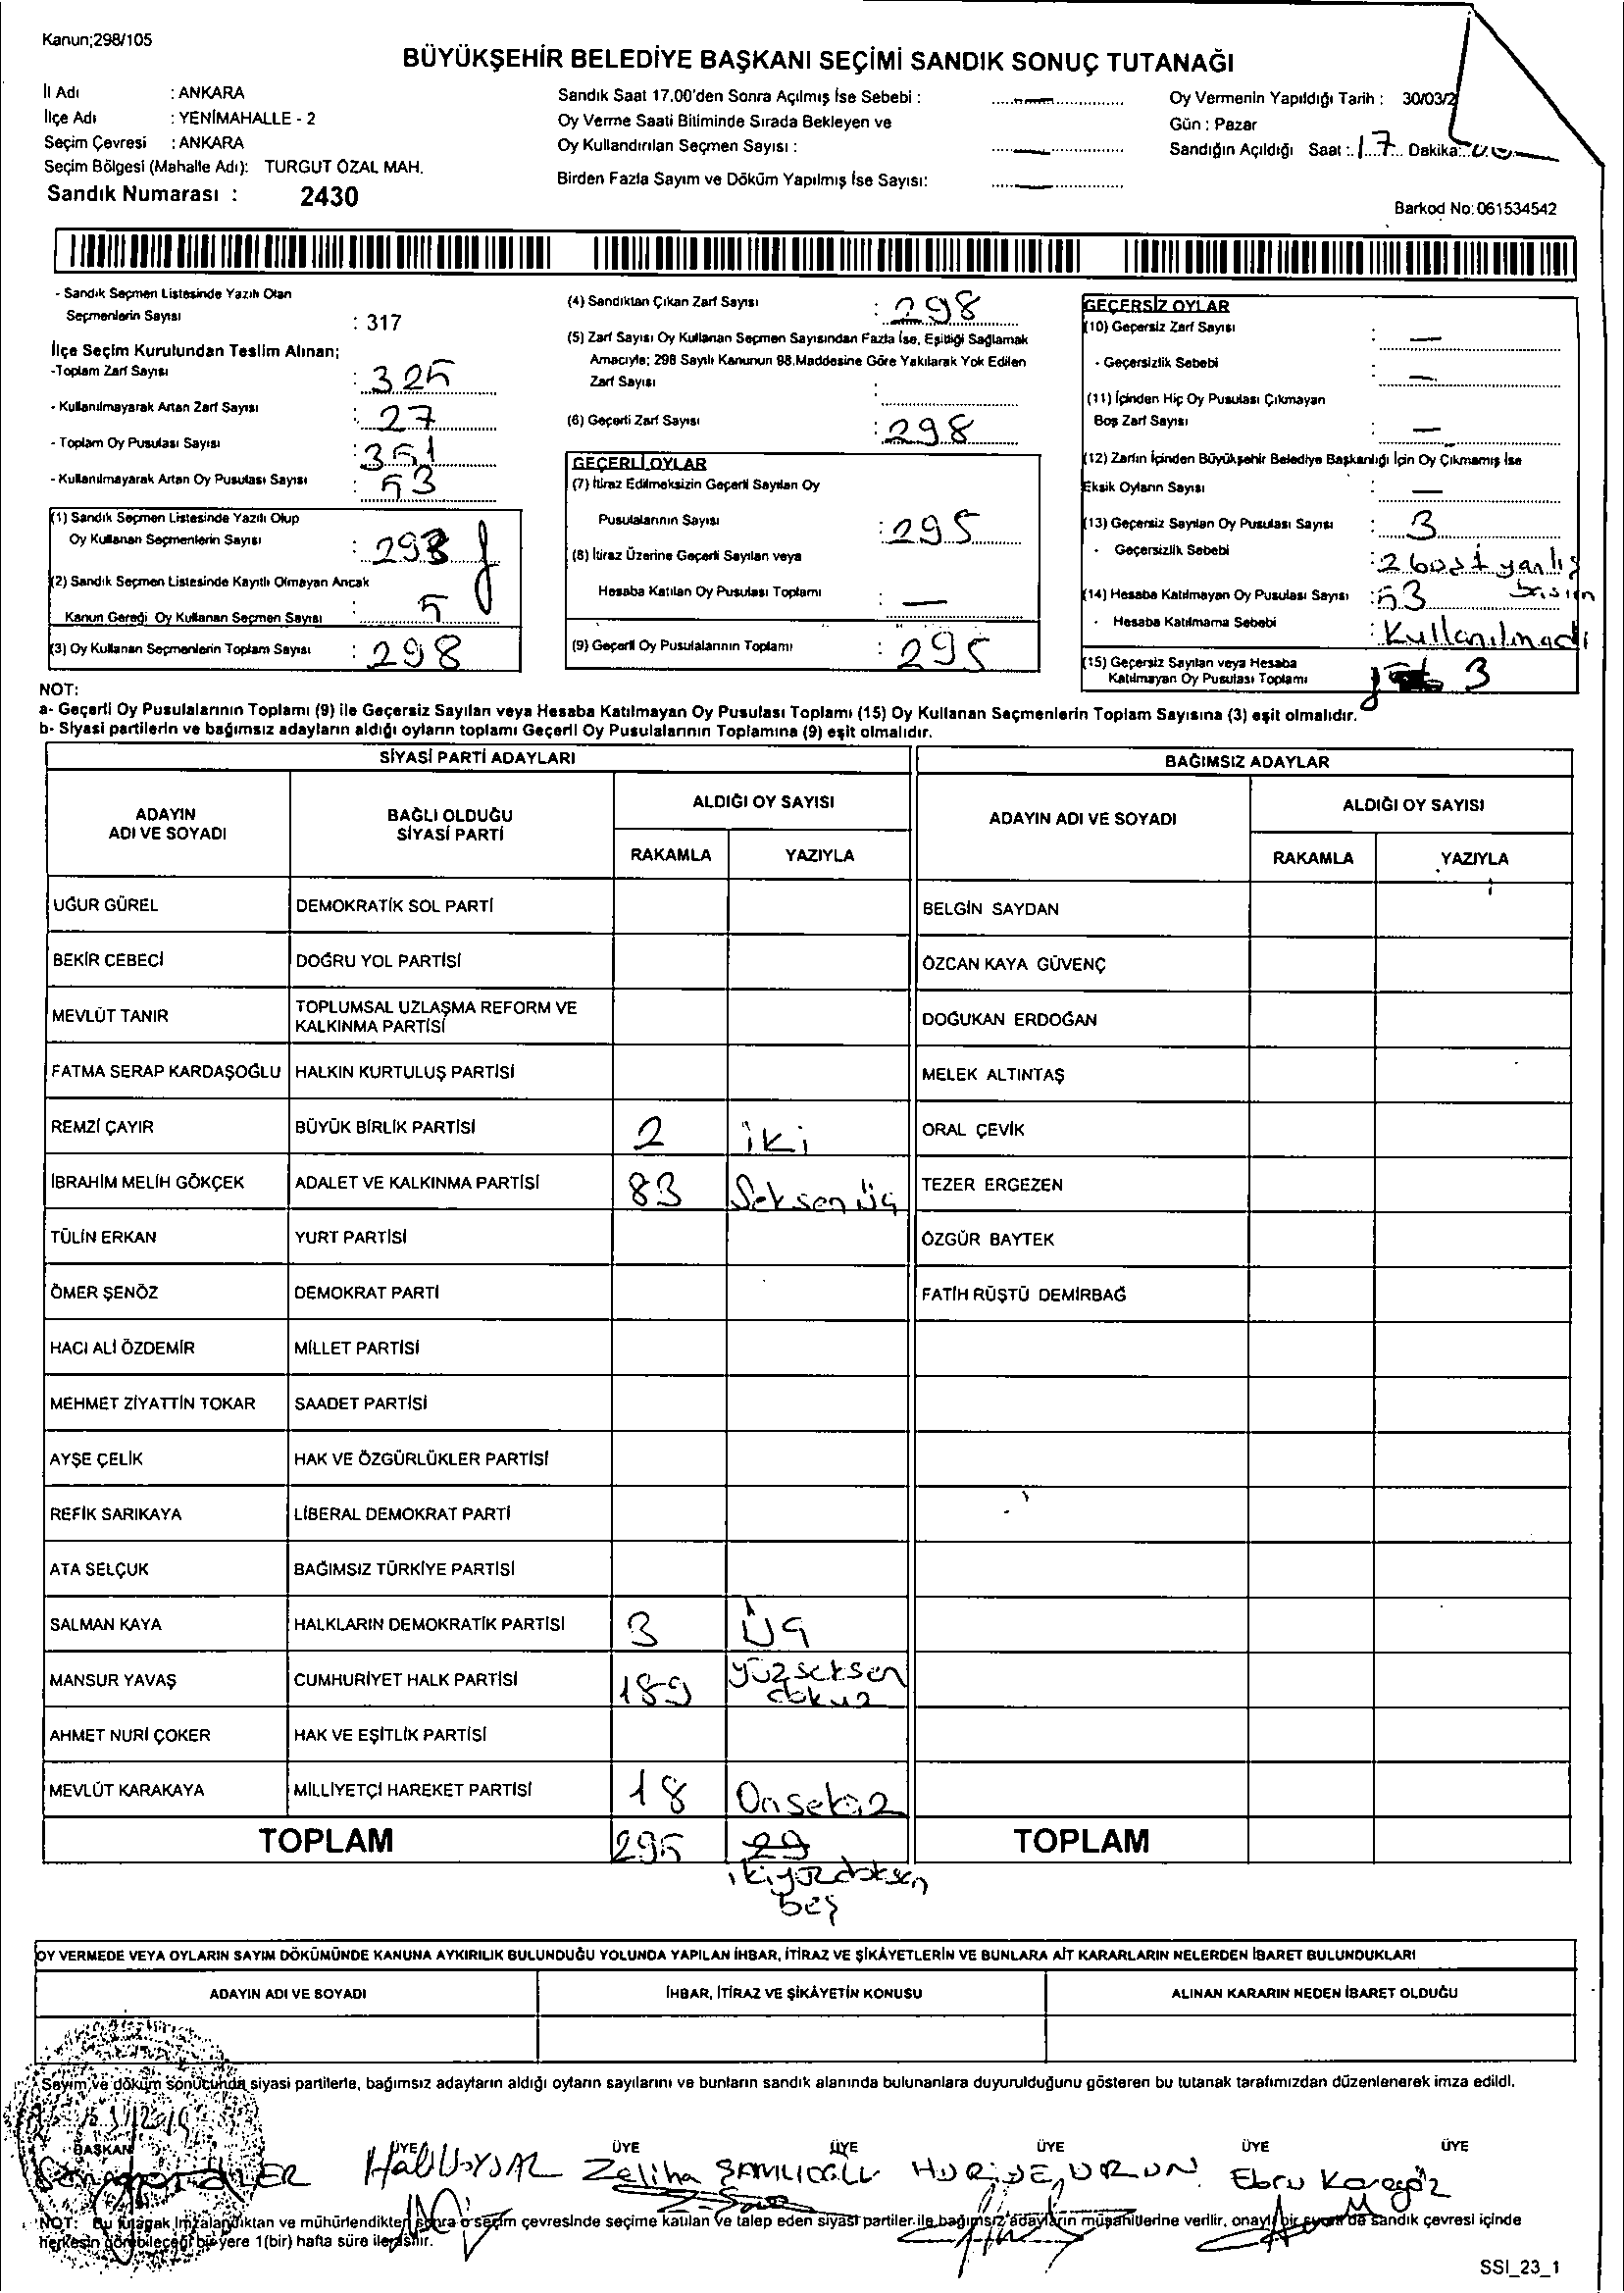 Kanun;298/105
BÜYÜKŞEHİR BELEDİYE BAŞKANI SEÇİMİ SANDIK SONUÇ TUTANAĞI
İl Adı : ANKARA
İlçe Adı : YENİMAHALLE - 2
Seçim Çevresi : ANKARA
Seçim Bölgesi (Mahalle Adı): TURGUT ÖZAL MAH.
Sandık Numarası : 2430
Sandık Saat 17.00'den Sonra Açılmış İse Sebebi : —
Oy Verme Saati Bitiminde Sırada Bekleyen ve
Oy Kullandırılan Seçmen Sayısı : —
Birden Fazla Sayım ve Döküm Yapılmış İse Sayısı: —
Oy Vermenin Yapıldığı Tarih : 30/03/2
Gün : Pazar
Sandığın Açıldığı Saat : 17 Dakika:
Barkod No:061534542
- Sandık Seçmen Listesinde Yazılı Olan
Seçmenlerin Sayısı : 317
İlçe Seçim Kurulundan Teslim Alınan;
-Toplam Zarf Sayısı : 325
- Kullanılmayarak Artan Zarf Sayısı : 27
- Toplam Oy Pusulası Sayısı : 351
- Kullanılmayarak Artan Oy Pusulası Sayısı : 53
(1) Sandık Seçmen Listesinde Yazılı Olup
Oy Kullanan Seçmenlerin Sayısı : 293
(2) Sandık Seçmen Listesinde Kayıtlı Olmayan Ancak
Kanun Gereği Oy Kullanan Seçmen Sayısı : 5
(3) Oy Kullanan Seçmenlerin Toplam Sayısı : 298
(4) Sandıktan Çıkan Zarf Sayısı : 298
(5) Zarf Sayısı Oy Kullanan Seçmen Sayısından Fazla İse, Eşitliği Sağlamak
Amacıyla; 298 Sayılı Kanunun 98.Maddesine Göre Yakılarak Yok Edilen
Zarf Sayısı :
(6) Geçerli Zarf Sayısı : 298
GEÇERLİ OYLAR
(7) İtiraz Edilmeksizin Geçerli Sayılan Oy
Pusulalarının Sayısı : 295
(8) İtiraz Üzerine Geçerli Sayılan veya
Hesaba Katılan Oy Pusulası Toplamı : —
(9) Geçerli Oy Pusulalarının Toplamı : 295
GEÇERSİZ OYLAR
(10) Geçersiz Zarf Sayısı : —
- Geçersizlik Sebebi : —
(11) İçinden Hiç Oy Pusulası Çıkmayan
Boş Zarf Sayısı : —
(12) Zarfın İçinden Büyükşehir Belediye Başkanlığı İçin Oy Çıkmamış İse
Eksik Oyların Sayısı : —
(13) Geçersiz Sayılan Oy Pusulası Sayısı : 3
- Geçersizlik Sebebi : 2 boş 1 yanlış
basım
(14) Hesaba Katılmayan Oy Pusulası Sayısı : 53
- Hesaba Katılmama Sebebi : Kullanılmadı
(15) Geçersiz Sayılan veya Hesaba
Katılmayan Oy Pusulası Toplamı 3
NOT:
a- Geçerli Oy Pusulalarının Toplamı (9) ile Geçersiz Sayılan veya Hesaba Katılmayan Oy Pusulası Toplamı (15) Oy Kullanan Seçmenlerin Toplam Sayısına (3) eşit olmalıdır.
b- Siyasi partilerin ve bağımsız adayların aldığı oyların toplamı Geçerli Oy Pusulalarının Toplamına (9) eşit olmalıdır.
SİYASİ PARTİ ADAYLARI
BAĞIMSIZ ADAYLAR
ADAYIN ADI VE SOYADI
BAĞLI OLDUĞU SİYASİ PARTİ
ALDIĞI OY SAYISI
RAKAMLA YAZIYLA
ADAYIN ADI VE SOYADI
ALDIĞI OY SAYISI
RAKAMLA YAZIYLA
UĞUR GÜREL DEMOKRATİK SOL PARTİ BELGİN SAYDAN
BEKİR CEBECİ DOĞRU YOL PARTİSİ ÖZCAN KAYA GÜVENÇ
MEVLÜT TANIR TOPLUMSAL UZLAŞMA REFORM VE KALKINMA PARTİSİ DOĞUKAN ERDOĞAN
FATMA SERAP KARDAŞOĞLU HALKIN KURTULUŞ PARTİSİ MELEK ALTINTAŞ
REMZİ ÇAYIR BÜYÜK BİRLİK PARTİSİ 2 iki ORAL ÇEVİK
İBRAHİM MELİH GÖKÇEK ADALET VE KALKINMA PARTİSİ 83 Seksen üç TEZER ERGEZEN
TÜLİN ERKAN YURT PARTİSİ ÖZGÜR BAYTEK
ÖMER ŞENÖZ DEMOKRAT PARTİ FATİH RÜŞTÜ DEMİRBAĞ
HACI ALİ ÖZDEMİR MİLLET PARTİSİ
MEHMET ZİYATTİN TOKAR SAADET PARTİSİ
AYŞE ÇELİK HAK VE ÖZGÜRLÜKLER PARTİSİ
REFİK SARIKAYA LİBERAL DEMOKRAT PARTİ
ATA SELÇUK BAĞIMSIZ TÜRKİYE PARTİSİ
SALMAN KAYA HALKLARIN DEMOKRATİK PARTİSİ 3 üç
MANSUR YAVAŞ CUMHURİYET HALK PARTİSİ 189 yüzseksen dokuz
AHMET NURİ ÇOKER HAK VE EŞİTLİK PARTİSİ
MEVLÜT KARAKAYA MİLLİYETÇİ HAREKET PARTİSİ 18 Onsekiz
TOPLAM 295 29 TOPLAM
ikiyüzdoksen
beş
OY VERMEDE VEYA OYLARIN SAYIM DÖKÜMÜNDE KANUNA AYKIRILIK BULUNDUĞU YOLUNDA YAPILAN İHBAR, İTİRAZ VE ŞİKÂYETLERİN VE BUNLARA AİT KARARLARIN NELERDEN İBARET BULUNDUKLARI
ADAYIN ADI VE SOYADI İHBAR, İTİRAZ VE ŞİKÂYETİN KONUSU ALINAN KARARIN NEDEN İBARET OLDUĞU
Sayım ve döküm sonucunda siyasi partilerle, bağımsız adayların aldığı oyların sayılarını ve bunların sandık alanında bulunanlara duyurulduğunu gösteren bu tutanak tarafımızdan düzenlenerek imza edildi.
BAŞKAN ÜYE ÜYE ÜYE ÜYE ÜYE ÜYE
Halil UYSAL Zeliha HURİYE URUN Ebru Karagöz
NOT: Bu tutanak imzalandıktan ve mühürlendikten sonra o seçim çevresinde seçime katılan ve talep eden siyasi partiler ile bağımsız adayların müşahitlerine verilir, onaylı bir sureti de sandık çevresi içinde
herkesin görebileceği bir yere 1(bir) hafta süre ile asılır.
SSI_23_1